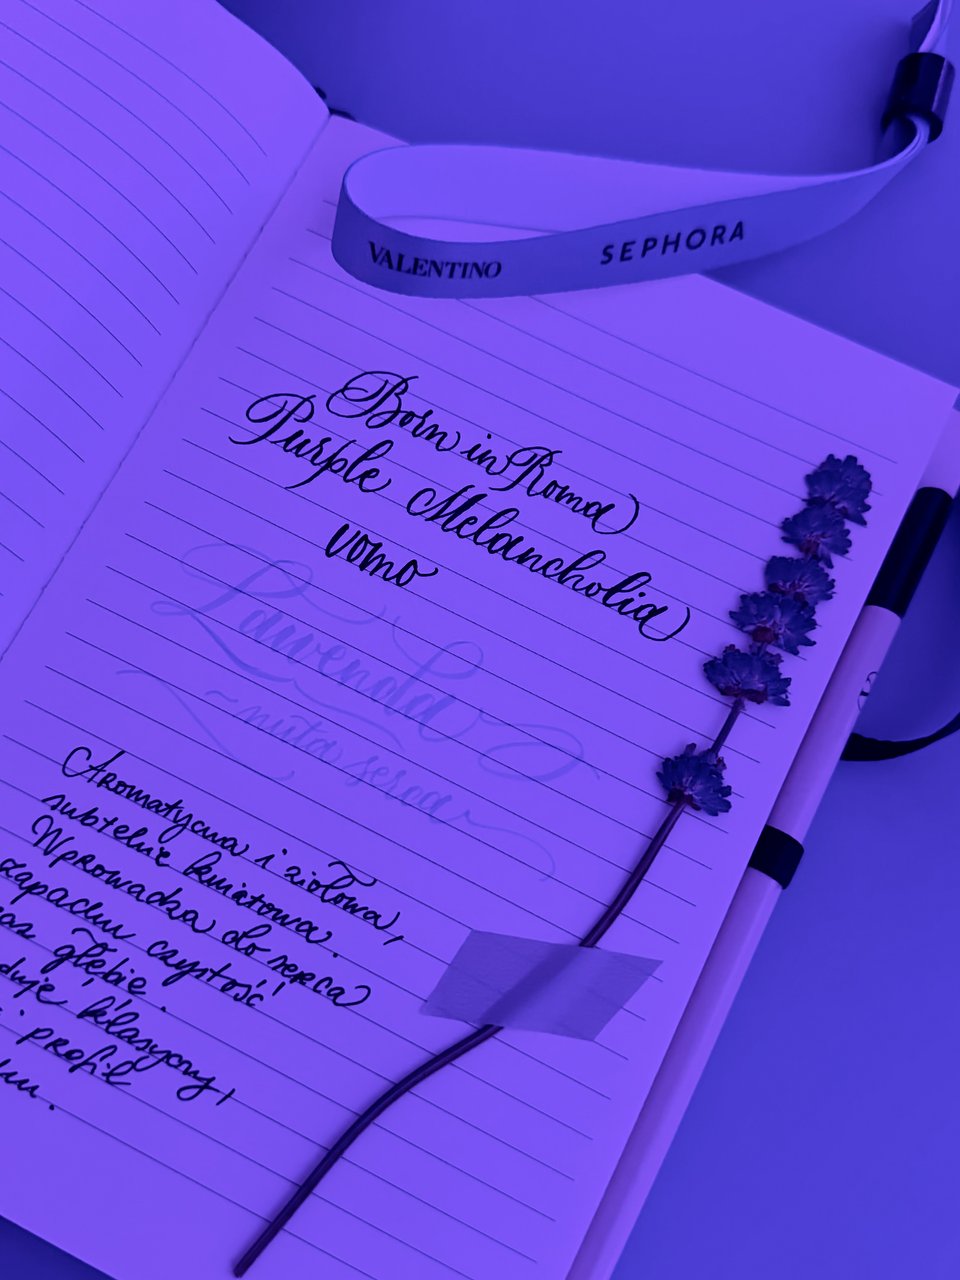 VALENTINO SEPHORA
Born in Roma
Purple Melancholia
uomo
Lawenda
~ nuta serca
Aromatyczna i ziołowa,
subtelnie kwiatowa.
Wprowadza do serca
zapachu czystość
głębię.
klasyczny,
i profil